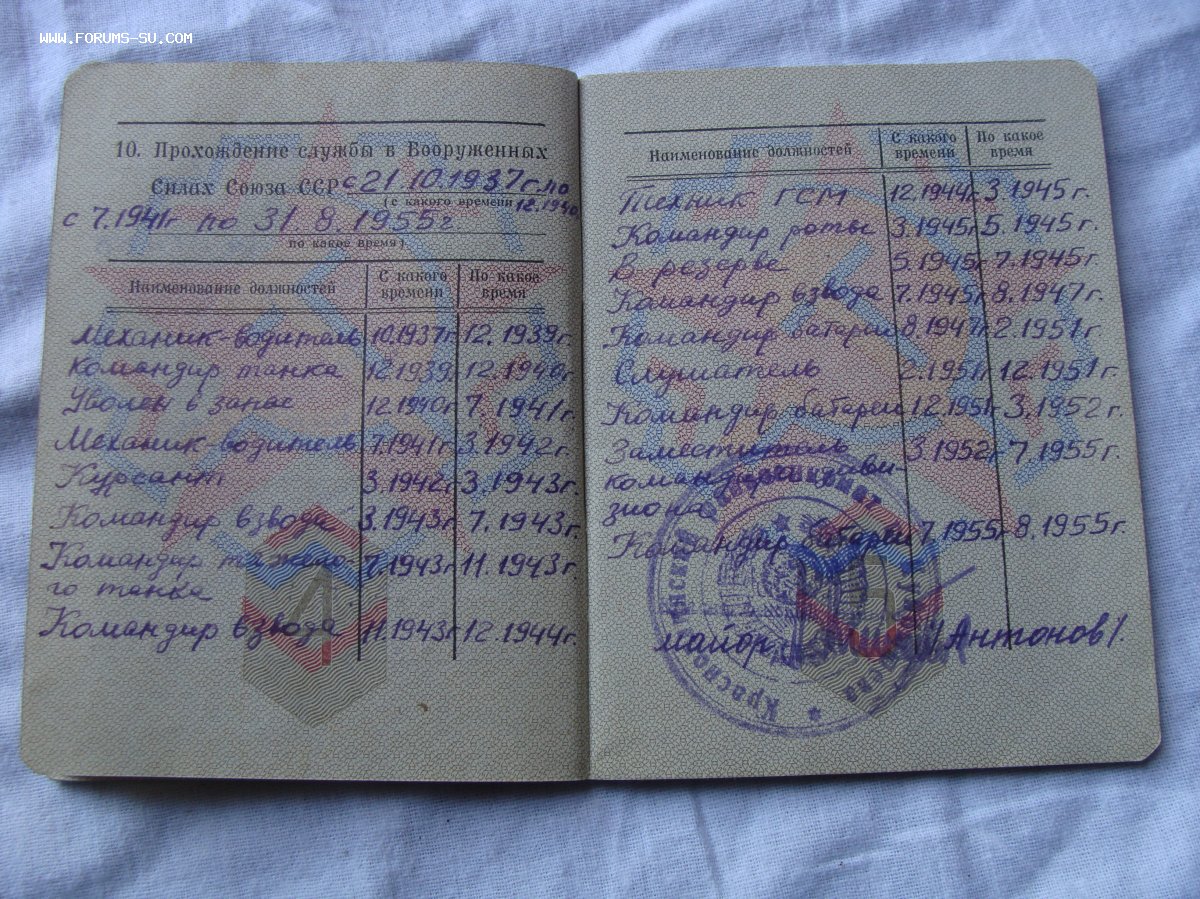 www.FORUMS-SU.COM
10. Прохождение службы в Вооруженных
Силах Союза ССР с 21.10.1937г. по
(с какого времени 12.1940
с 7.1941г по 31.8.1955г
по какое время)
Наименование должностей С какого времени По какое время
Механик-водитель 10.1937г. 12.1939г.
Командир танка 12.1939. 12.1940г.
Уволен в запас 12.1940г. 7.1941г.
Механик-водитель 7.1941г. 3.1942г.
Курсант 3.1942г. 3.1943г.
Командир взвода 3.1943г. 7.1943г.
Командир тяжело-
го танка 7.1943г. 11.1943г.
Командир взвода 11.1943г 12.1944г.
Наименование должностей С какого времени По какое время
Техник ГСМ 12.1944г. 3.1945г.
Командир роты 3.1945г. 5.1945г.
В резерве 5.1945г. 7.1945г.
Командир взвода 7.1945г. 8.1947г.
Командир батареи 8.1947г. 2.1951г.
Слушатель 2.1951г. 12.1951г.
Командир батареи 12.1951г. 3.1952г.
Заместитель 3.1952г 7.1955г.
командира диви-
зиона
Командир батареи 7.1955г 8.1955г.
майор /Антонов/.
4